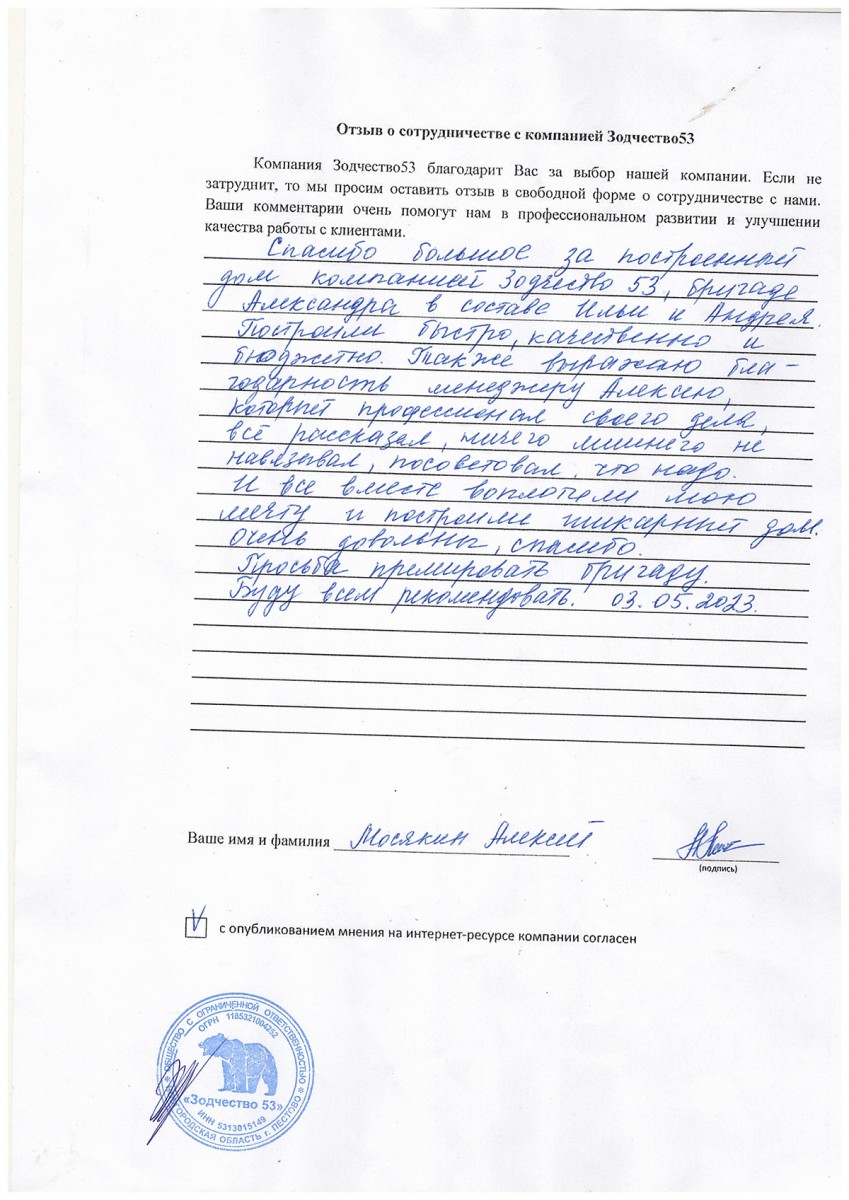 Отзыв о сотрудничестве с компанией Зодчество53
Компания Зодчество53 благодарит Вас за выбор нашей компании. Если не
затруднит, то мы просим оставить отзыв в свободной форме о сотрудничестве с нами.
Ваши комментарии очень помогут нам в профессиональном развитии и улучшении
качества работы с клиентами.
Спасибо большое за построенный
дом компанией Зодчество 53, бригаде
Александра в составе Ильи и Андрея.
Построили быстро, качественно и
бюджетно. Также выражаю бла-
годарность менеджеру Алексею,
который профессионал своего дела,
всё рассказал, ничего лишнего не
навязывал, посоветовал, что надо.
И все вместе воплотили мою
мечту и построили шикарный дом.
Очень довольны, спасибо.
Просьба премировать бригаду.
Буду всем рекомендовать. 03.05.2023.
Ваше имя и фамилия Мосякин Алексей
(подпись)
V с опубликованием мнения на интернет-ресурсе компании согласен
ОБЩЕСТВО С ОГРАНИЧЕННОЙ ОТВЕТСТВЕННОСТЬЮ
ОГРН 1185321004252
«Зодчество 53»
ИНН 5313015149
ГОРОДСКАЯ ОБЛАСТЬ г. ПЕСТОВО